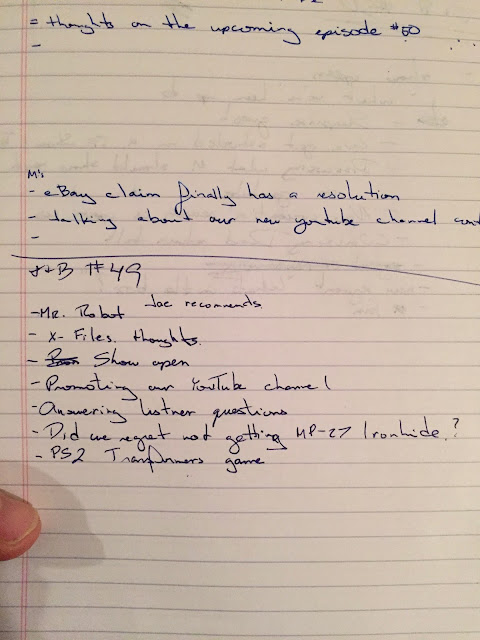 = thoughts on the upcoming episode #50 ...
-
M's
- eBay claim finally has a resolution
- talking about our new youtube channel cont
-
J+B #49
- Mr. Robot Jae recommends
- X-Files. thoughts.
- Show open
- Promoting our YouTube channel
- Answering listner questions
- Did we regret not getting MP-27 Ironhide.?
- PS2 Transformers game